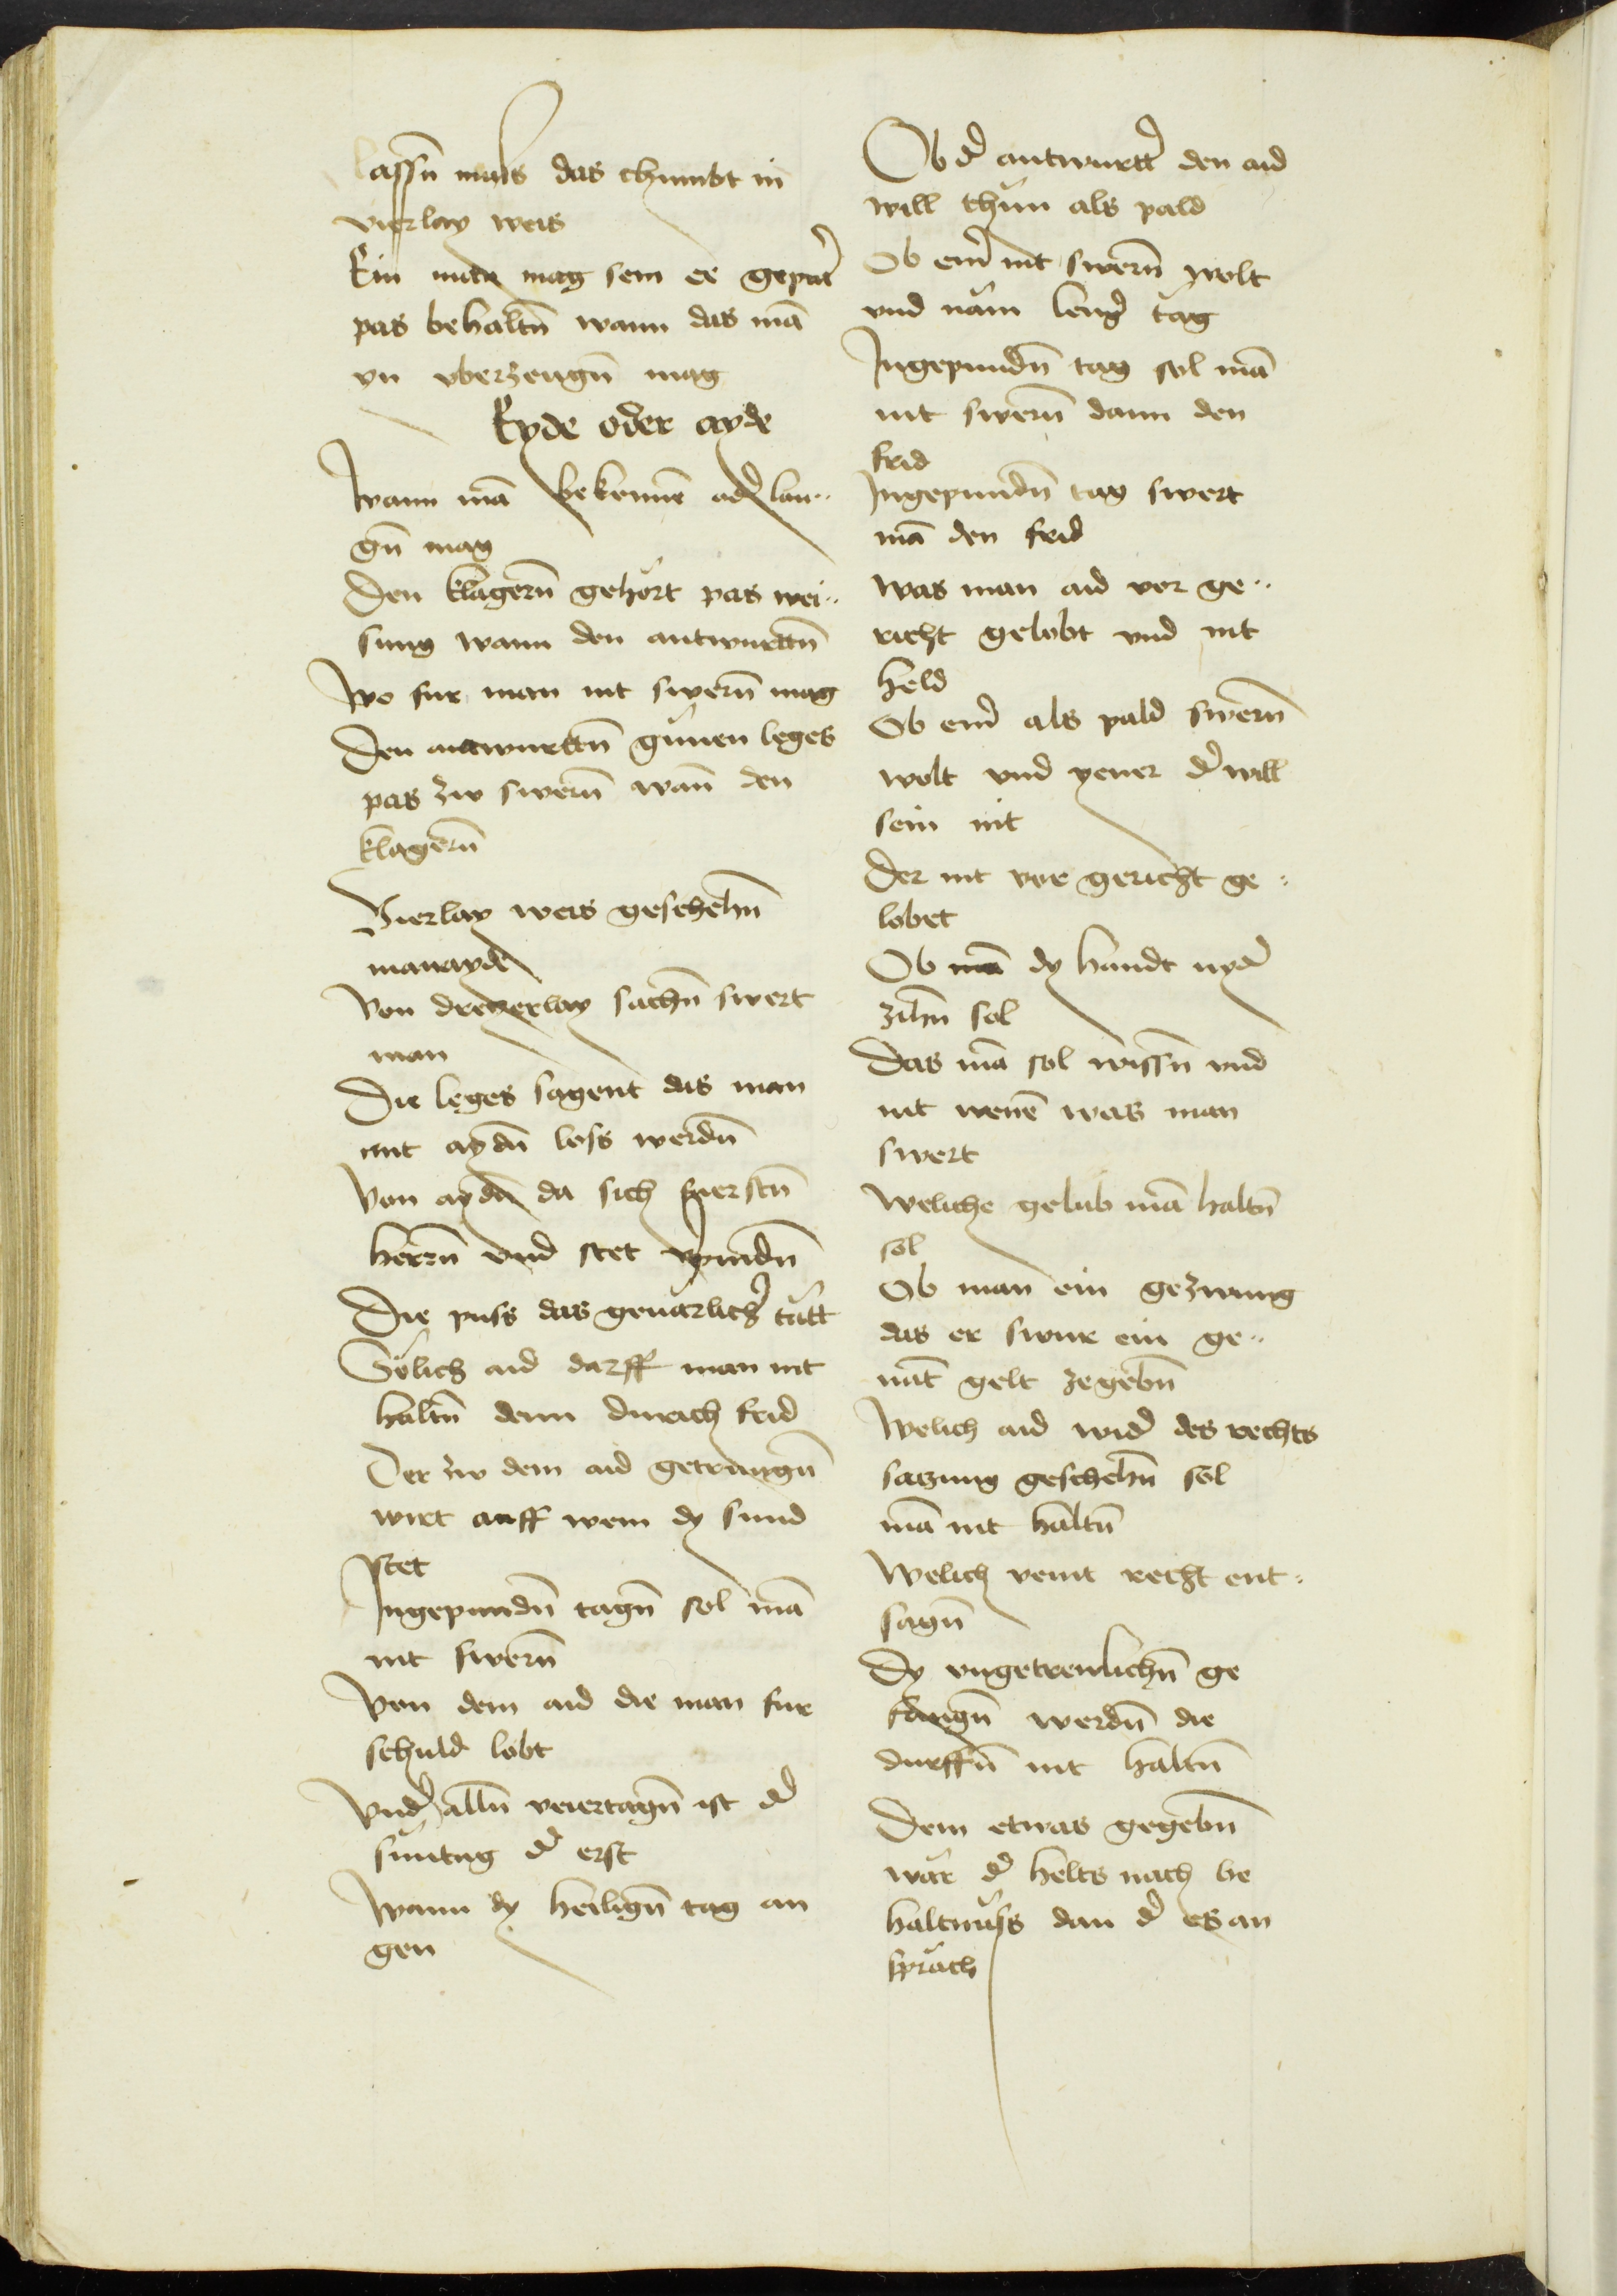 lassn̄ mues das chumbt in
vierlay weis
Ein man mag sein ee gepūr
pas behaltn̄ wann das mā
yn vberzeugn̄ mag
Eyde oder ayde
Wann mā bekennē od̉ lau⸗
gn̄ mag
Den klagern̄ gehort pas wei⸗
sung wann den antwurttn̄
Wo fur man nit swern̄ mag
Den antwurttn̄ gunen leges
pas zw swern̄ wan̄ den
klagern̄
Vierlay weis geschehn̄
manayde
Von dreyerlay sachn̄ swert
man
Die leges sagent das man
mit aydn̄ loss werdn̄
Von aydn̄ da sich furstn̄
herrn̄ vnd stet vpindn̄
Die puss das geuarlich̉ tatt
Sölich aid darff man nit
haltn̄ denn durich frid
Der zw dem aid getrungn̄
wirt auff wem dy sund
stet
In gepundn̄ tagn̄ sol mā
nit swern̄
Von dem aid die man fur
schuld lobt
Vnd̉ alln̄ veiertagn̄ ist d̉
suntag d̉ erst
Wann dy heilign̄ tag an
gen
Ob d̉ antwurtt̉ den aid
will thun als pald
Ob ein̉ nit swern̄ wolt
vnd nam leng̉ tag
In gepundn̄ tag sol mā
nit swern̄ dann den
frid
In gepundn̄ tag swert
mā den frid
Was man aid vor ge⸗
richt gelobt vnd nit
held
Ob ein̉ als pald swern̄
wolt vnd yener d̉ will
sein nit
Der nit vor gericht ge⸗
lobet
Ob mā dy handt nyd̉
zihn̄ sol
Das mā sol wissn̄ vnd
nit wenē was man
swert
Weliche gelub mā haltn̄
sol
Ob man ein gezwung
das er swur ein ge⸗
nāt gelt ze gebn̄
Welich aid wid̉ des rechts
satzung geschehn̄ sol
mā nit haltn̄
Welich veint recht ent⸗
sagn̄
Dy vngetreulichn̄ ge
fangn̄ werdn̄ die
durffn̄ nit haltn̄
Dem etwas gegebn̄
war d̉ helts nach be
haltnuss dan d̉ es an
sprach